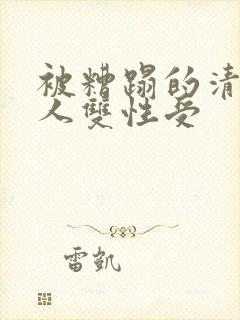 被糟蹋的清
人雙性受
雷凱